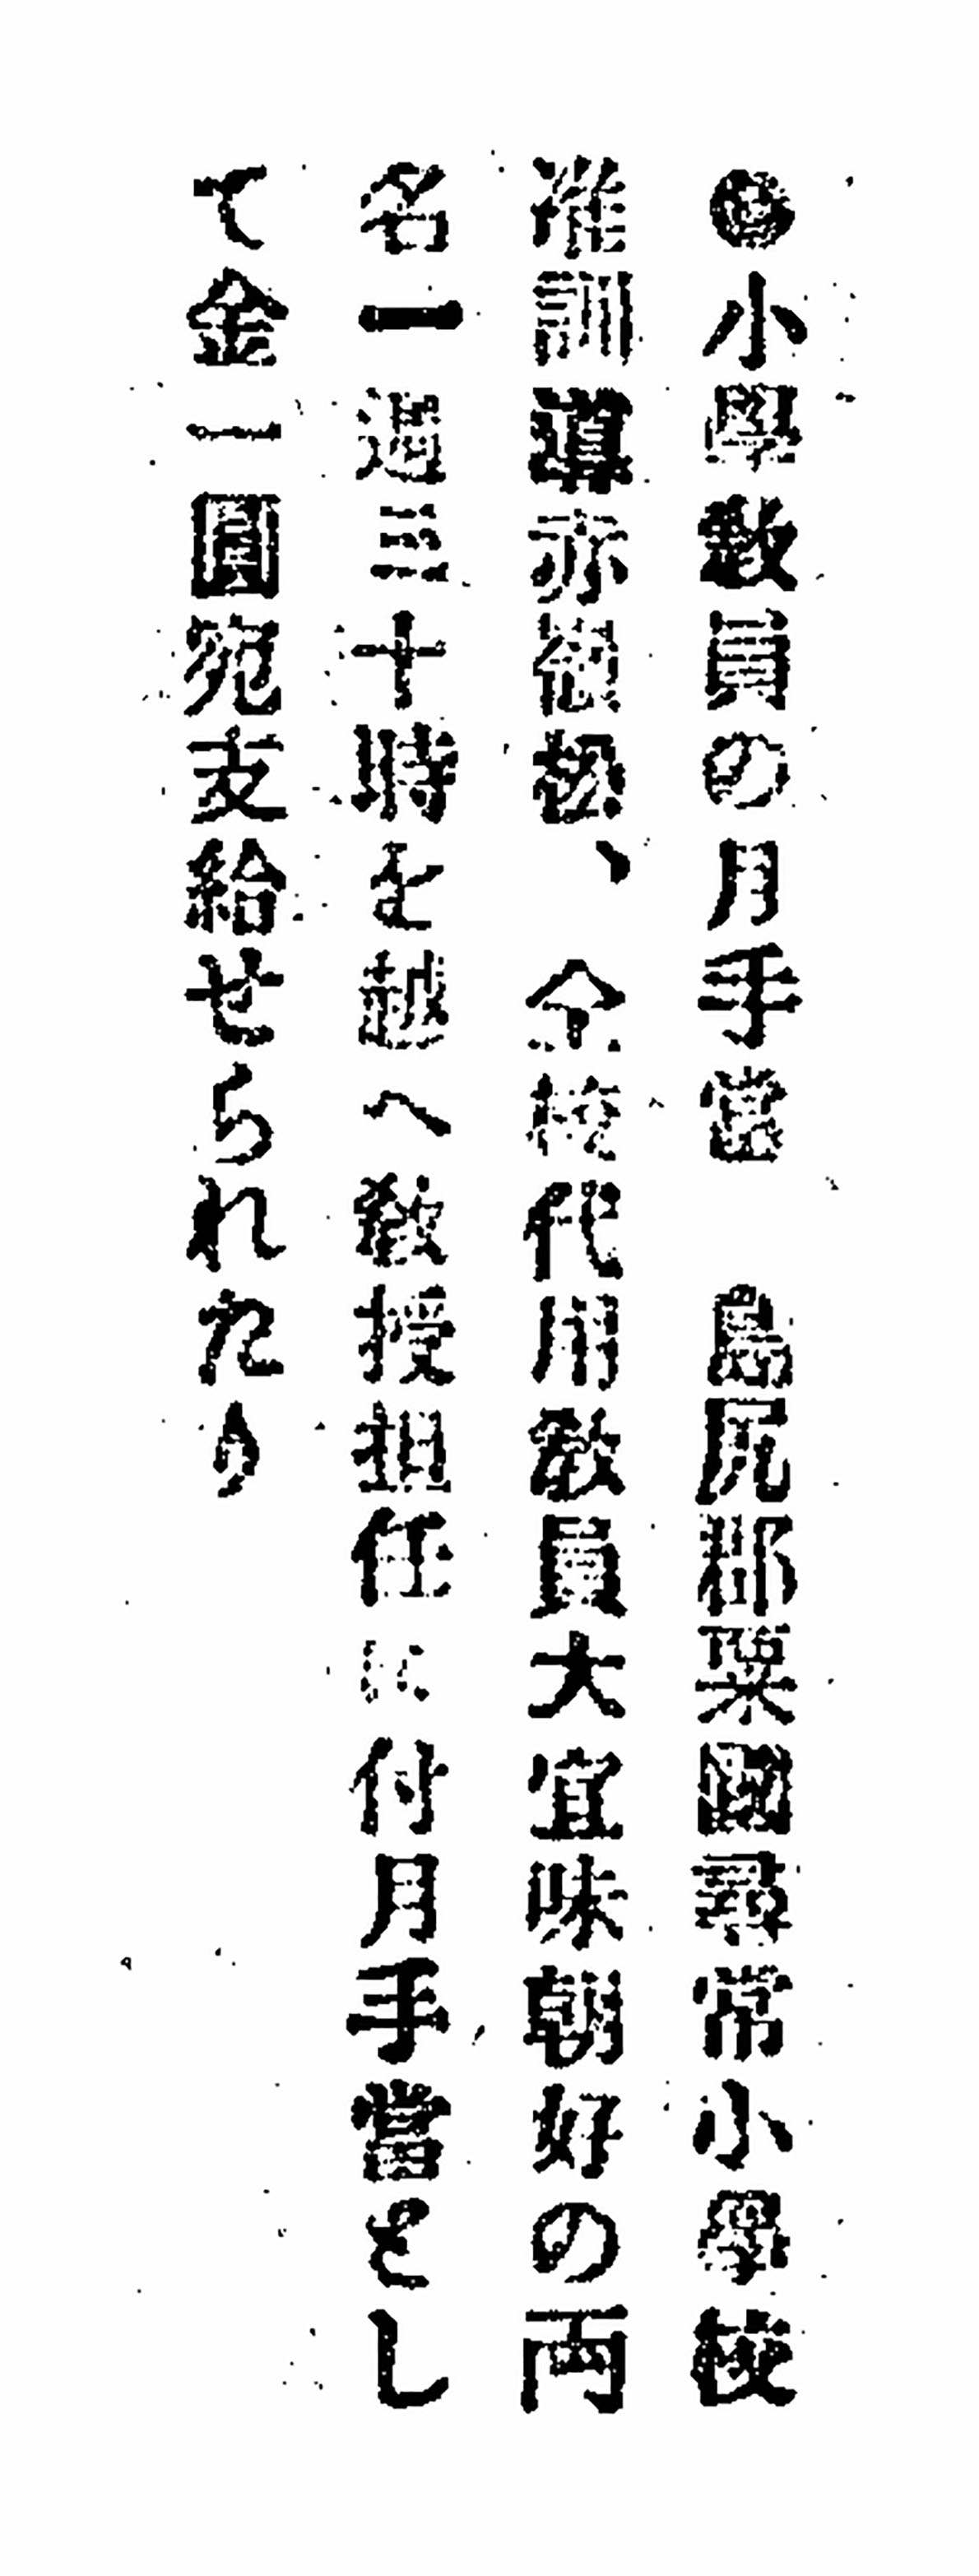 ◉小學敎員の月手當　島尻郡粟國尋常小學校
准訓導赤嶺松、仝校代用敎員大宜味朝好の両
名一週三十時を越へ敎授担任に付月手當とし
て金一圓宛支給せられたり